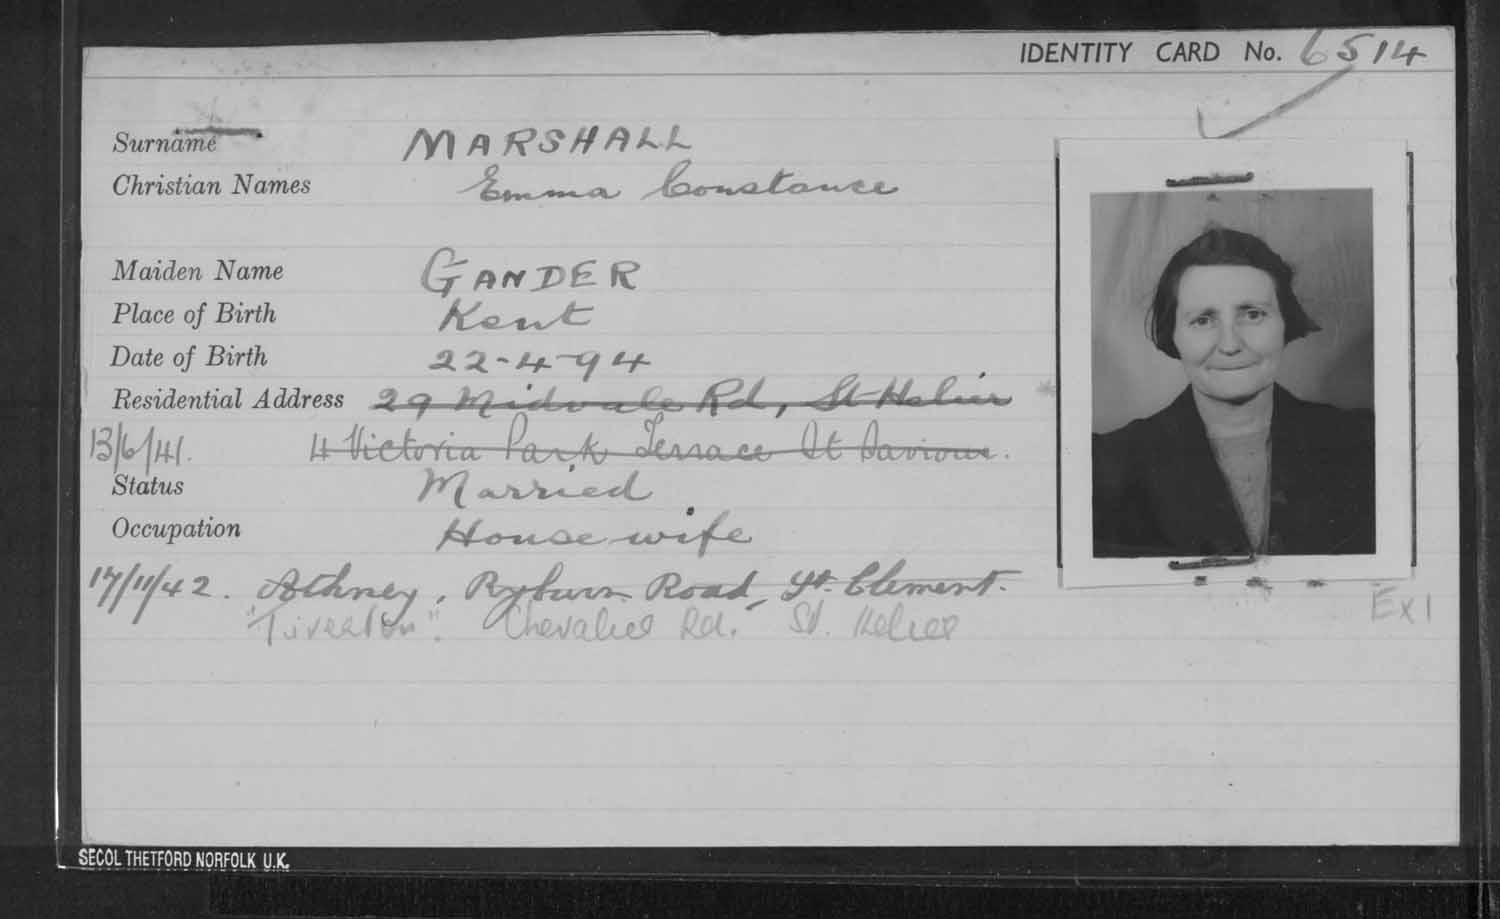 IDENTITY CARD No. 6514
Surname MARSHALL
Christian Names Emma Constance
Maiden Name GANDER
Place of Birth Kent
Date of Birth 22-4-94
Residential Address 29 Midvale Rd, St Helier
13/6/41. 4 Victoria Park Terrace St Saviour.
Status Married
Occupation Housewife
17/11/42. Athney, Ryburn Road, St. Clement.
"Tiverton". Chevalier Rd. St. Helier
Ex1
SECOL THETFORD NORFOLK U.K.